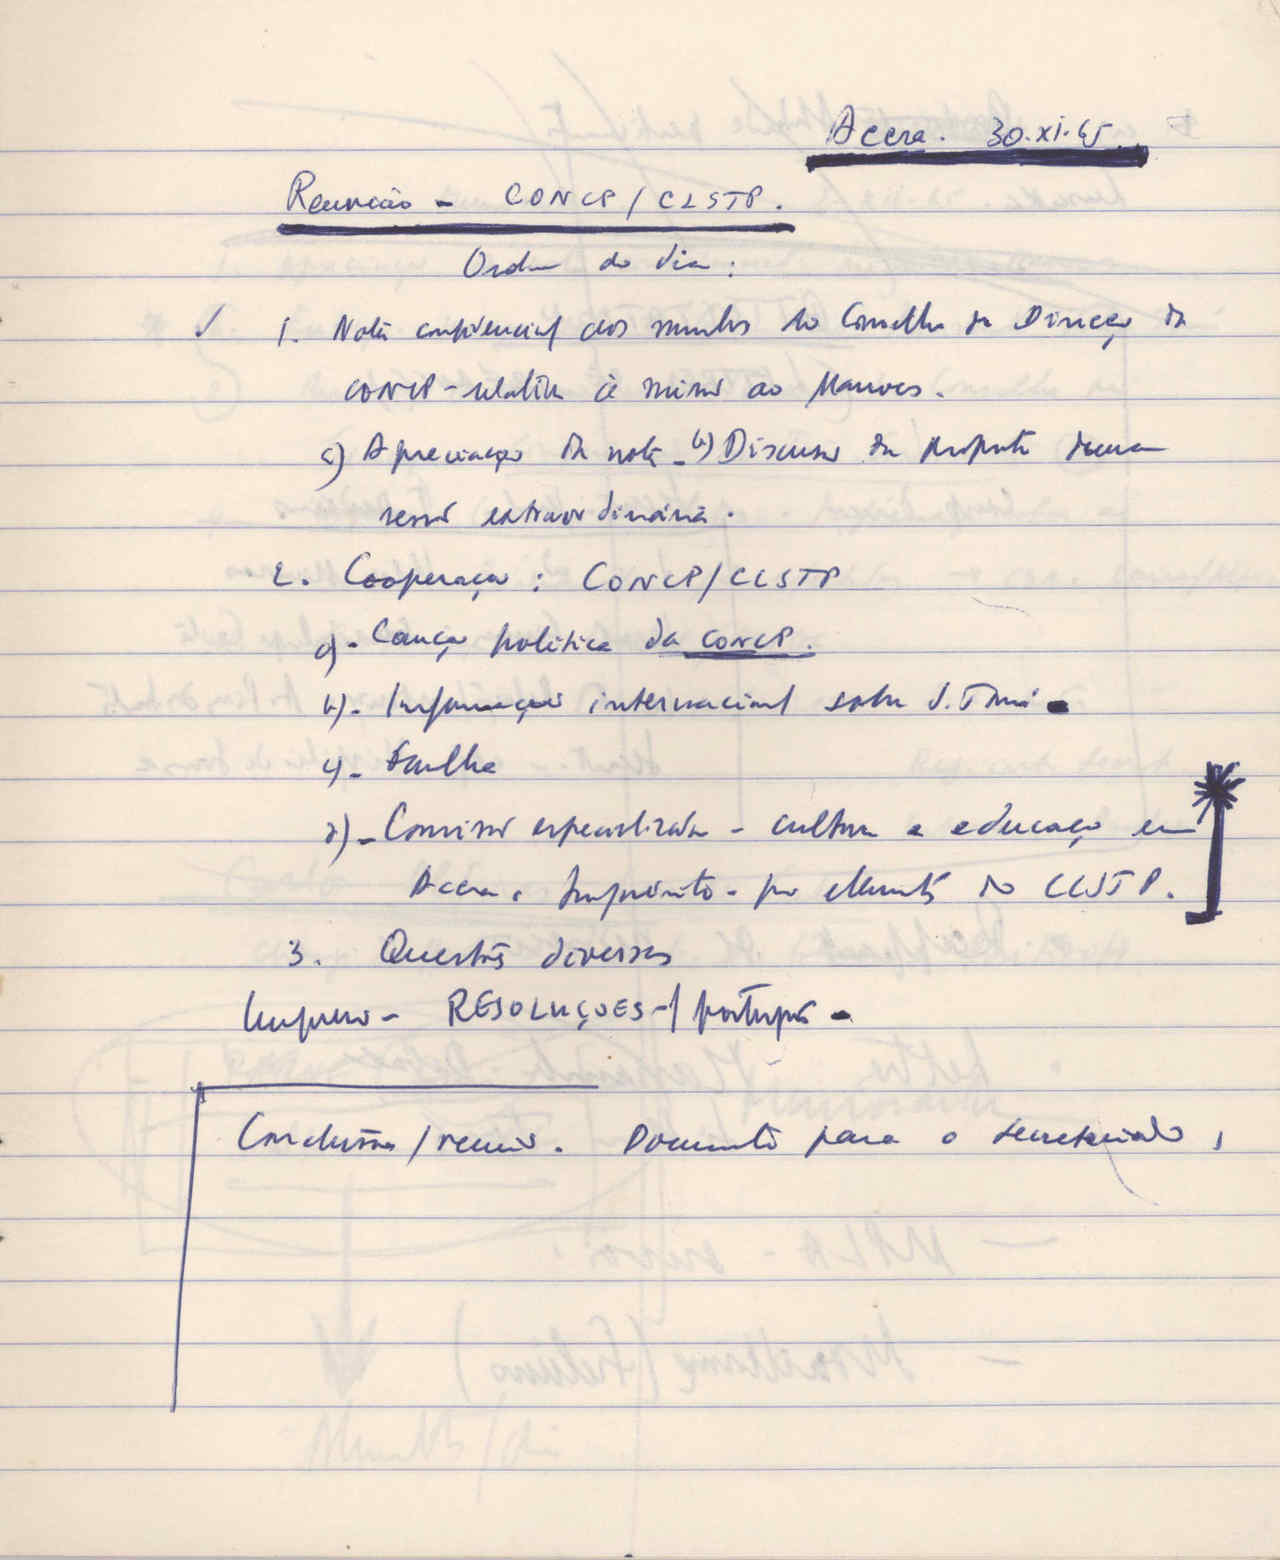 Accra. 30.XI.65
Reunião - CONCP/CLSTP.
Ordem do dia:
1. Nota confidencial dos membros do Conselho de Direcção da
CONCP - relativa à missão ao Marrocos.
a) Apreciação da nota - b) Discussão da proposta duma
sessão extraordinária.
2. Cooperação: CONCP/CLSTP
a) - política da CONCP.
b) - Informação internacional sobre S. Tomé -
c) -
d) - Comissão especializada - cultura e educação em
Accra. - por elementos do CLSTP.
3. Questões diversas
RESOLUÇÕES -/ português -
Conclusões/reunião. Documentos para o secretariado,